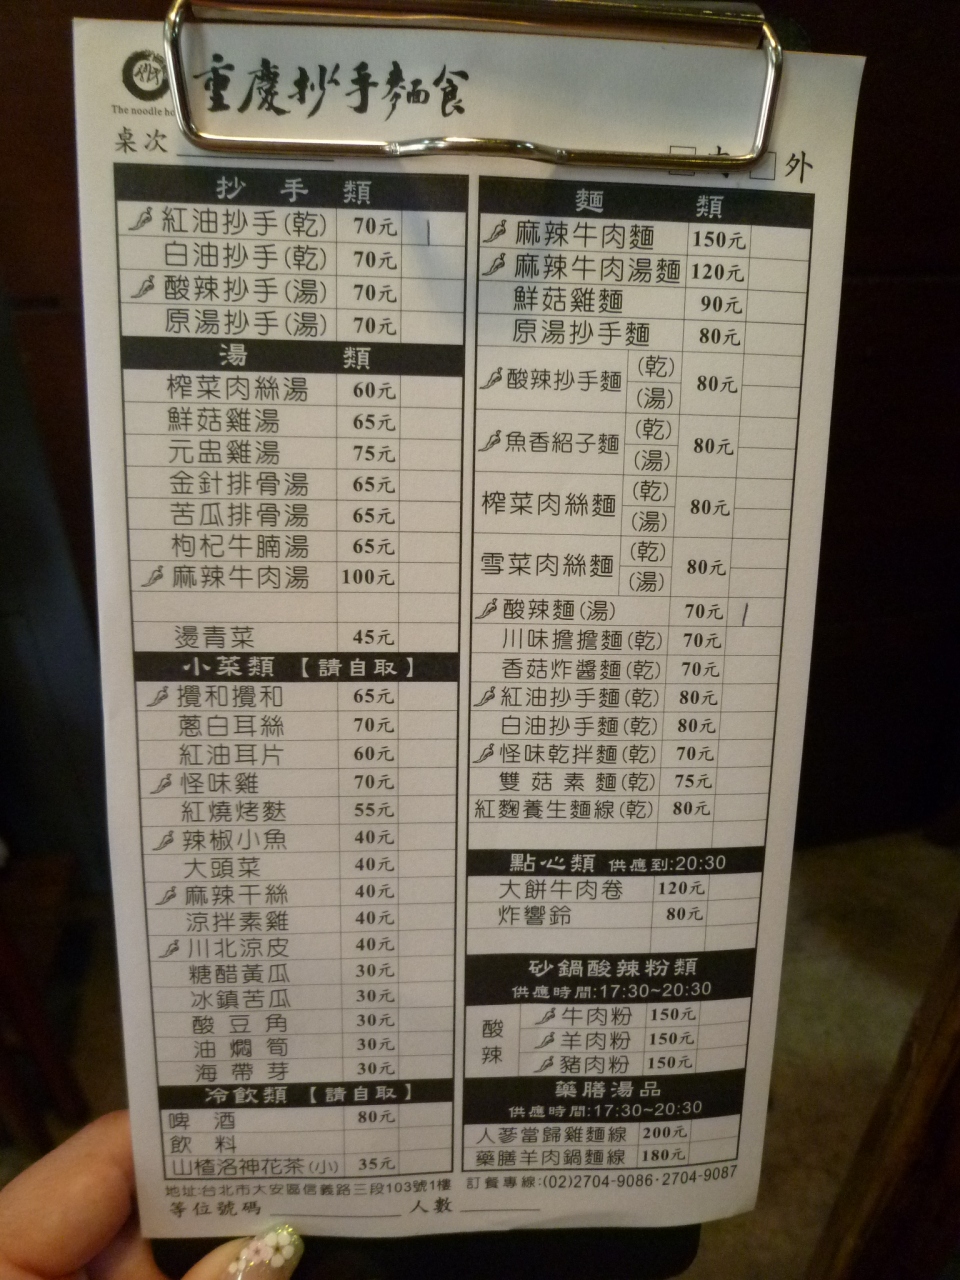 The noodle ho
重慶抄手麵食
桌次
外
抄手類
紅油抄手(乾) 70元
白油抄手(乾) 70元
酸辣抄手(湯) 70元
原湯抄手(湯) 70元
湯類
榨菜肉絲湯 60元
鮮菇雞湯 65元
元盅雞湯 75元
金針排骨湯 65元
苦瓜排骨湯 65元
枸杞牛腩湯 65元
麻辣牛肉湯 100元
燙青菜 45元
小菜類【請自取】
攪和攪和 65元
蔥白耳絲 70元
紅油耳片 60元
怪味雞 70元
紅燒烤麩 55元
辣椒小魚 40元
大頭菜 40元
麻辣干絲 40元
涼拌素雞 40元
川北涼皮 40元
糖醋黃瓜 30元
冰鎮苦瓜 30元
酸豆角 30元
油燜筍 30元
海帶芽 30元
冷飲類【請自取】
啤酒 80元
飲料
山楂洛神花茶(小) 35元
麵類
麻辣牛肉麵 150元
麻辣牛肉湯麵 120元
鮮菇雞麵 90元
原湯抄手麵 80元
酸辣抄手麵 (乾) (湯) 80元
魚香紹子麵 (乾) (湯) 80元
榨菜肉絲麵 (乾) (湯) 80元
雪菜肉絲麵 (乾) (湯) 80元
酸辣麵(湯) 70元
川味擔擔麵(乾) 70元
香菇炸醬麵(乾) 70元
紅油抄手麵(乾) 80元
白油抄手麵(乾) 80元
怪味乾拌麵(乾) 70元
雙菇素麵(乾) 75元
紅麴養生麵線(乾) 80元
點心類 供應到:20:30
大餅牛肉卷 120元
炸響鈴 80元
砂鍋酸辣粉類
供應時間:17:30~20:30
酸辣
牛肉粉 150元
羊肉粉 150元
豬肉粉 150元
藥膳湯品
供應時間:17:30~20:30
人蔘當歸雞麵線 200元
藥膳羊肉鍋麵線 180元
地址:台北市大安區信義路三段103號1樓 訂餐專線:(02)2704-9086·2704-9087
等位號碼 人數